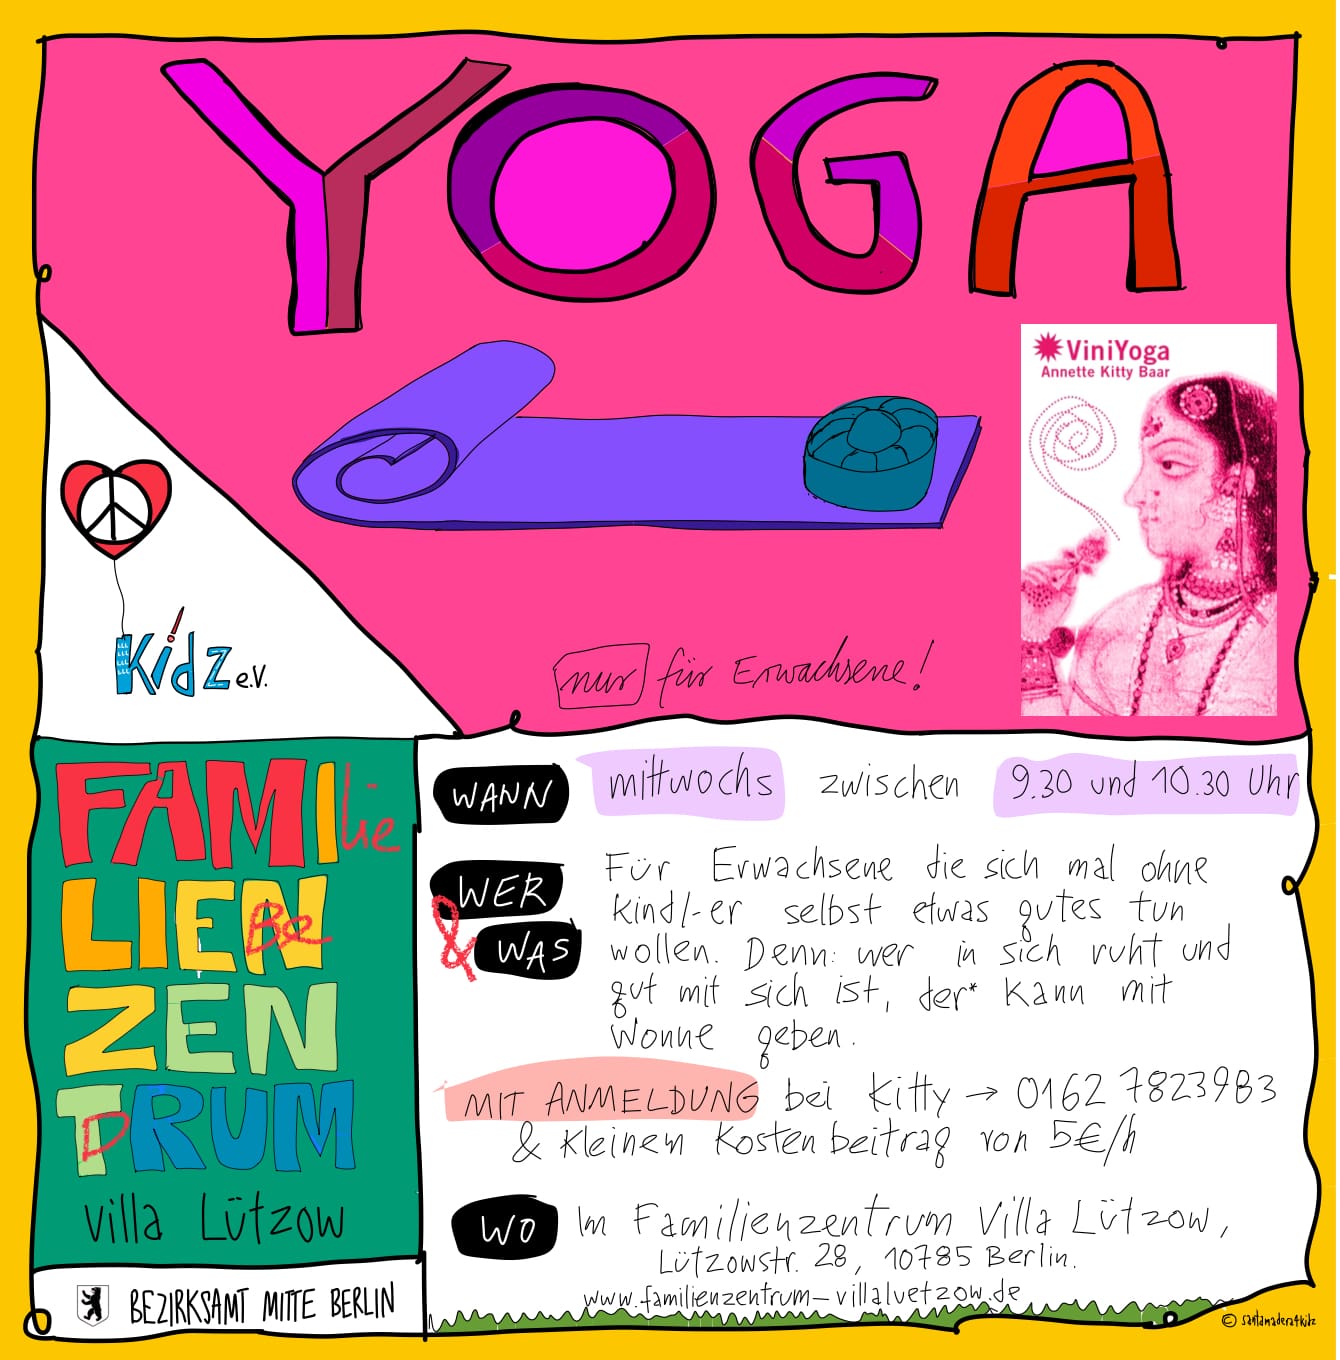 YOGA
ViniYoga
Annette Kitty Baar
Kidz e.V.
nur für Erwachsene!
FAMIlie
LIENBe
ZEN
TDRUM
villa Lützow
BEZIRKSAMT MITTE BERLIN
WANN mittwochs zwischen 9.30 und 10.30 Uhr
WER & WAS
Für Erwachsene die sich mal ohne
Kind/-er selbst etwas gutes tun
wollen. Denn: wer in sich ruht und
gut mit sich ist, der* kann mit
Wonne geben.
MIT ANMELDUNG bei Kitty → 0162 7823983
& kleinem Kostenbeitrag von 5€/h
WO Im Familienzentrum Villa Lützow,
Lützowstr. 28, 10785 Berlin.
www.familienzentrum-villaluetzow.de
© santamadera4kidz